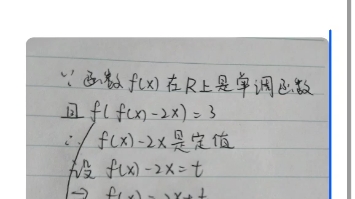 ∵ 函数 f(x) 在 R 上是单调函数
且 f(f(x)-2x)=3
∴ f(x)-2x 是定值
设 f(x)-2x=t
→ f(x)=2x+t